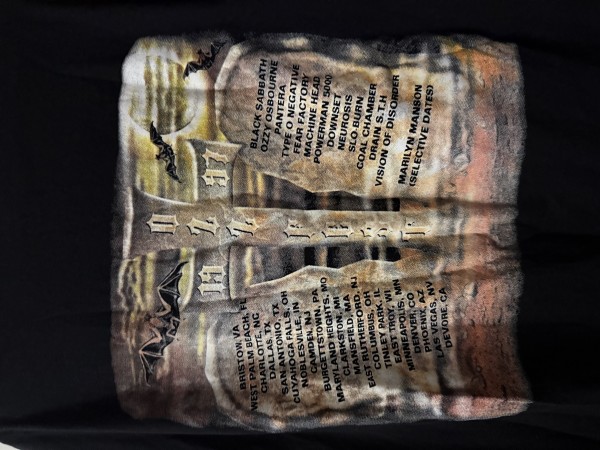 O
Z
19 Z 97
F
E
S
T
BRISTOW, VA
WEST PALM BEACH, FL
CHARLOTTE, NC
DALLAS, TX
SAN ANTONIO, TX
CUYAHOGA FALLS, OH
NOBLESVILLE, IN
CAMDEN, NJ
BURGETTSTOWN, PA
MARYLAND HEIGHTS, MO
CLARKSTON, MI
MANSFIELD, MA
EAST RUTHERFORD, NJ
COLUMBUS, OH
TINLEY PARK, IL
EAST TROY, WI
MINNEAPOLIS, MN
DENVER, CO
PHOENIX, AZ
LAS VEGAS, NV
DEVORE, CA
BLACK SABBATH
OZZY OSBOURNE
PANTERA
TYPE O NEGATIVE
FEAR FACTORY
MACHINE HEAD
POWERMAN 5000
DOWNSET
NEUROSIS
SLO BURN
COAL CHAMBER
DRAIN S.T.H
VISION OF DISORDER
MARILYN MANSON
(SELECTIVE DATES)